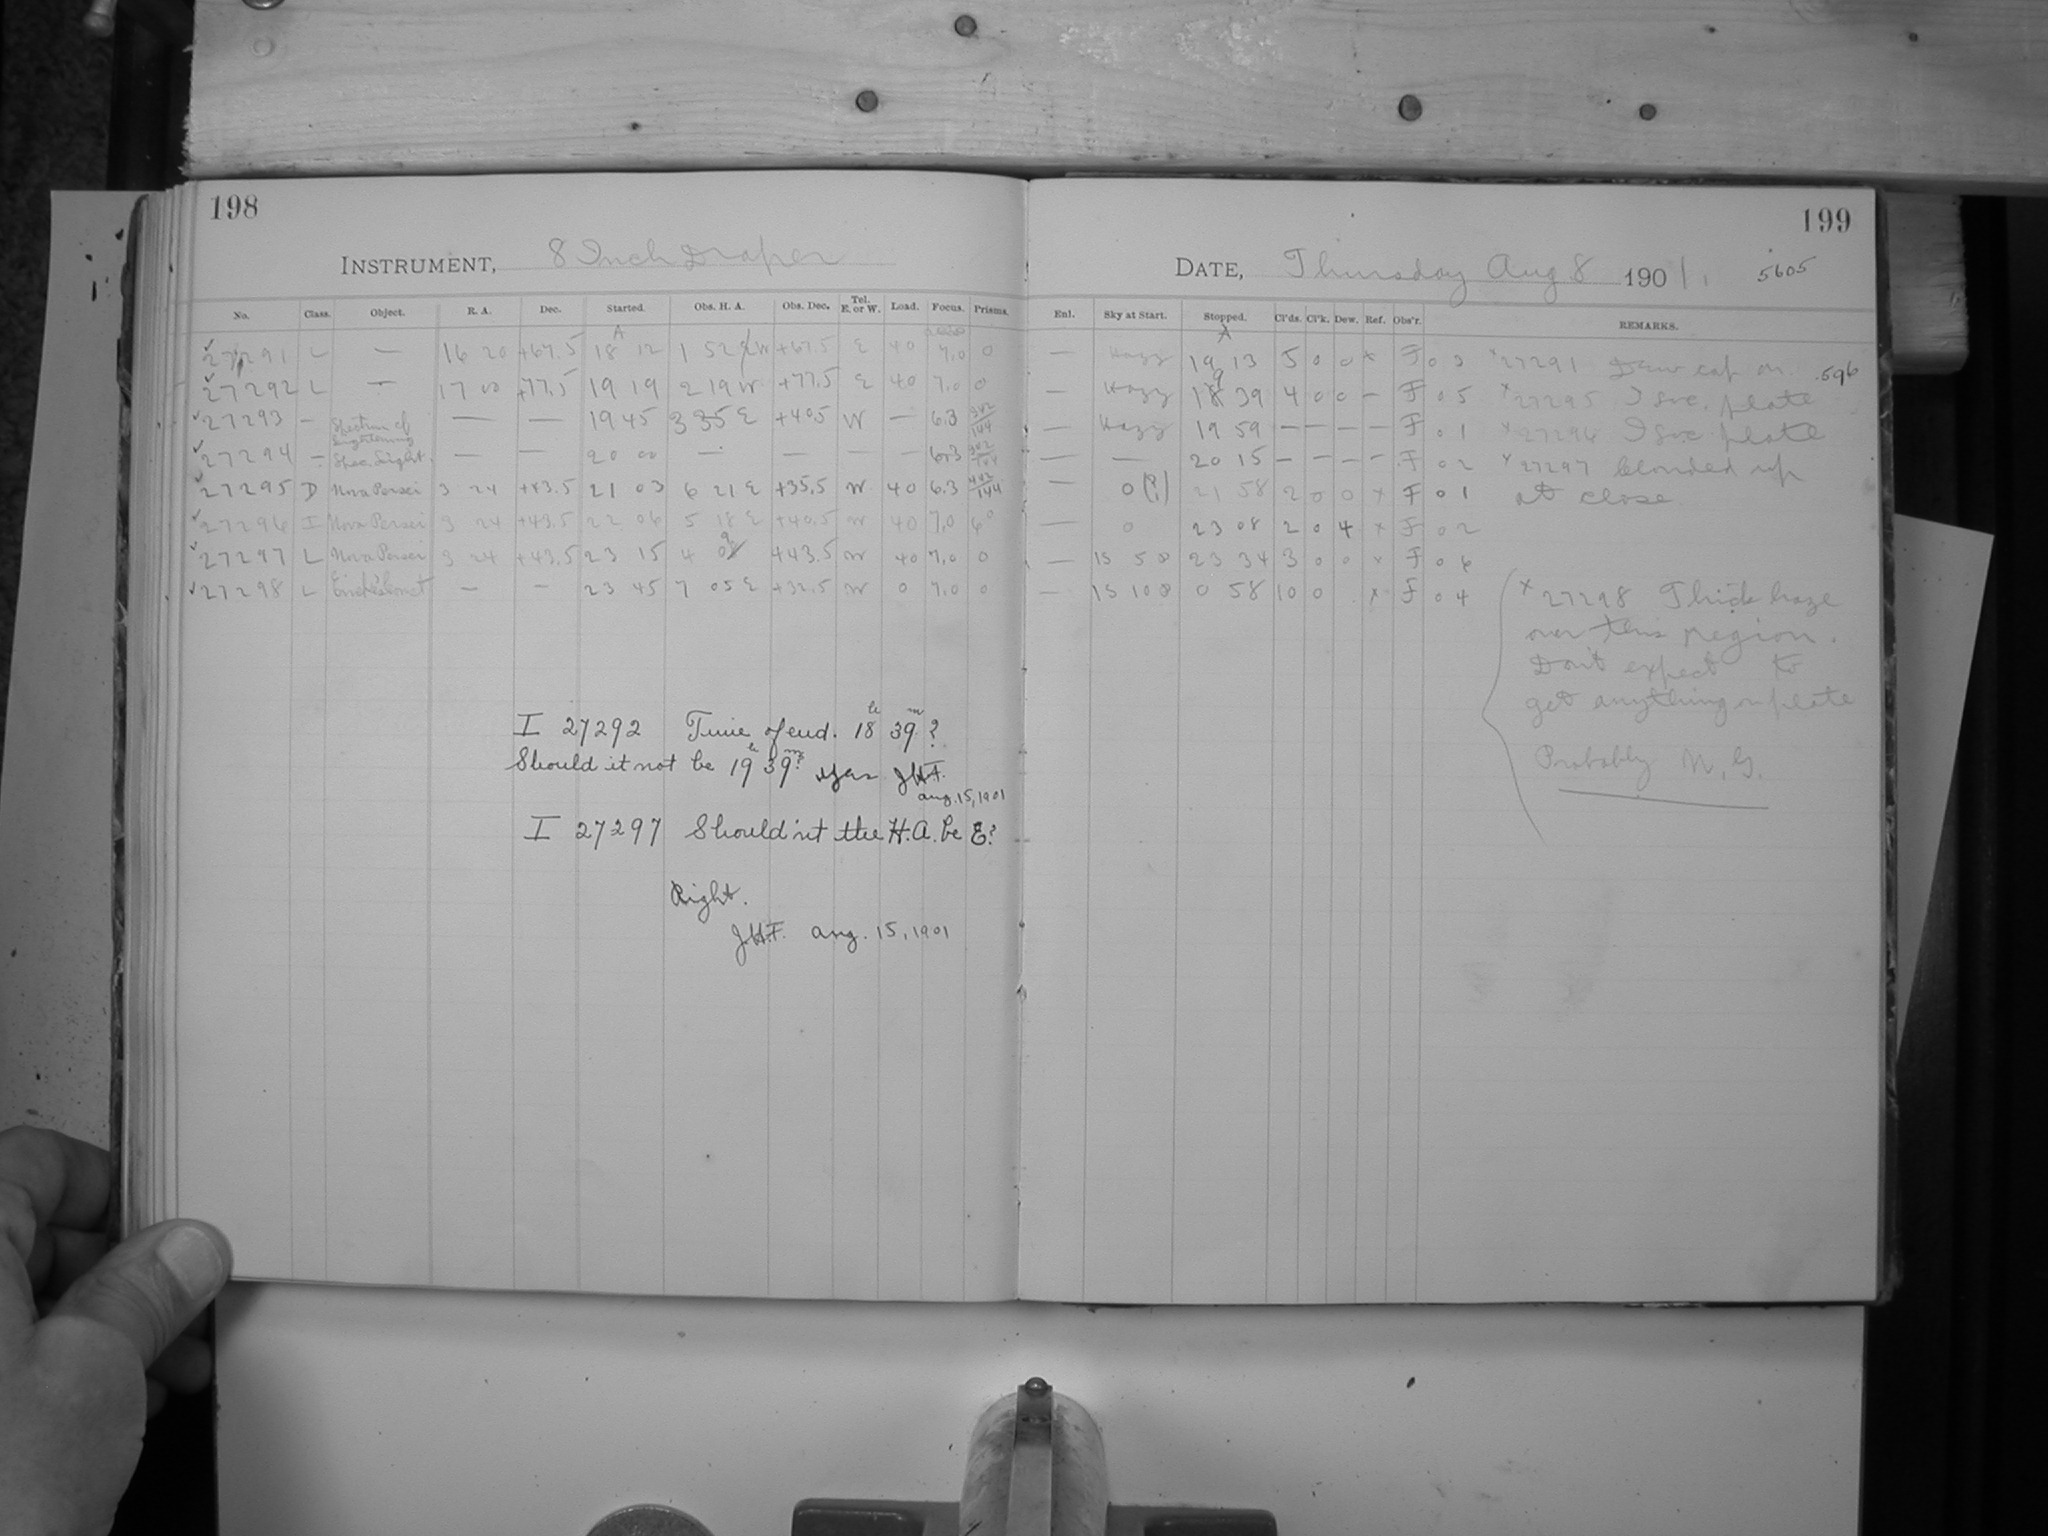 198
INSTRUMENT, 8 Inch Draper
No. Class. Object. R. A. Dec. Started. Obs. H. A. Obs. Dec. Tel. E. or W. Load. Focus. Prisms.
A
27291 L — 16 20 +67.5 18 12 1 52 W +67.5 E 40 7.0 0
27292 L — 17 00 +77.5 19 19 2 19 W +77.5 E 40 7.0 0
27293 — Spectrum of Lightening — — 19 45 3 35 E +40.5 W — 6.3 144
27294 — Spec. Light. — — 20 00 — — — — 6.3
27295 D Nova Persei 3 24 +43.5 21 03 6 21 E +35.5 W 40 6.3 144
27296 I Nova Persei 3 24 +43.5 22 06 5 18 E +40.5 W 40 7.0 6°
27297 L Nova Persei 3 24 +43.5 23 15 4 09 +43.5 W 40 7.0 0
27298 L Encke's Comet — — 23 45 7 05 E +32.5 W 0 7.0 0
I 27292 Time of end. 18h 39m?
Should it not be 19h 39m? Yes J.H.F.
Aug. 15, 1901
I 27297 Should'nt the H.A. be E?
Right.
J.H.F. Aug. 15, 1901
199
DATE, Thursday Aug 8 1901 5605
Enl. Sky at Start. Stopped. Cl'ds. Cl'k. Dew. Ref. Obs'r. REMARKS.
A
— Hazy 19 13 5 0 0 x F 03 x27291 Dew cap on. .596
— Hazy 19 39 4 0 0 — F 05 x27295 I soc. plate
— Hazy 19 59 — — — — F 01 x27296 I soc plate
— — 20 15 — — — — F 02 x27297 clouded up
— 0(?) 21 58 2 0 0 x F 01 at close
— 0 23 08 2 0 4 x F 02
— 15 50 23 34 3 0 0 x F 06
— 15 100 0 58 10 0 x F 04
x27298 Thick haze
over this region.
Don't expect to
get anything on plate
Probably N.G.